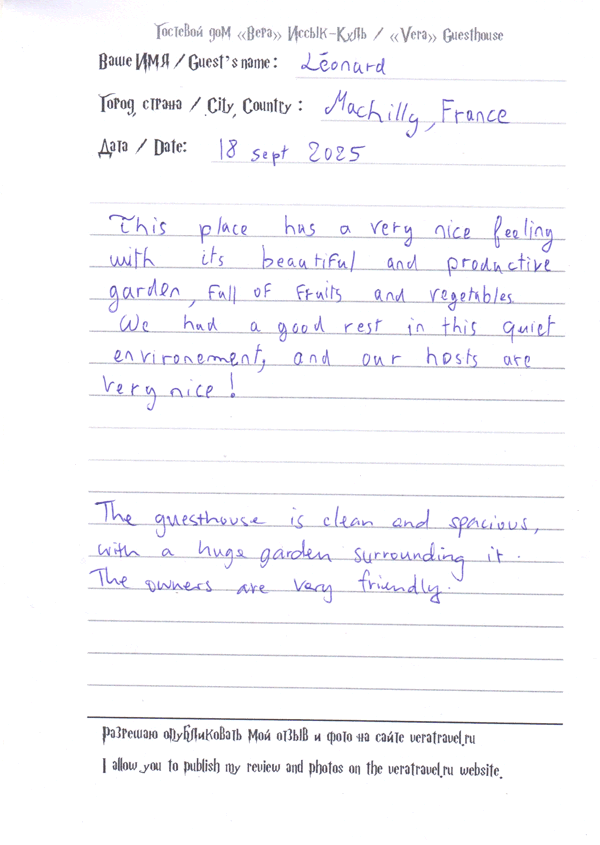 Гостевой дом «Вера» Иссык-Куль / «Vera» Guesthouse
Ваше ИМЯ / Guest's name: Léonard
Город, страна / City, Country: Machilly, France
Дата / Date: 18 sept 2025
This place has a very nice feeling
with its beautiful and productive
garden, full of fruits and vegetables
We had a good rest in this quiet
environement, and our hosts are
very nice!
The guesthouse is clean and spacious,
with a huge garden surrounding it.
The owners are very friendly.
Разрешаю опубликовать мой отзыв и фото на сайте veratravel.ru
I allow you to publish my review and photos on the veratravel.ru website.